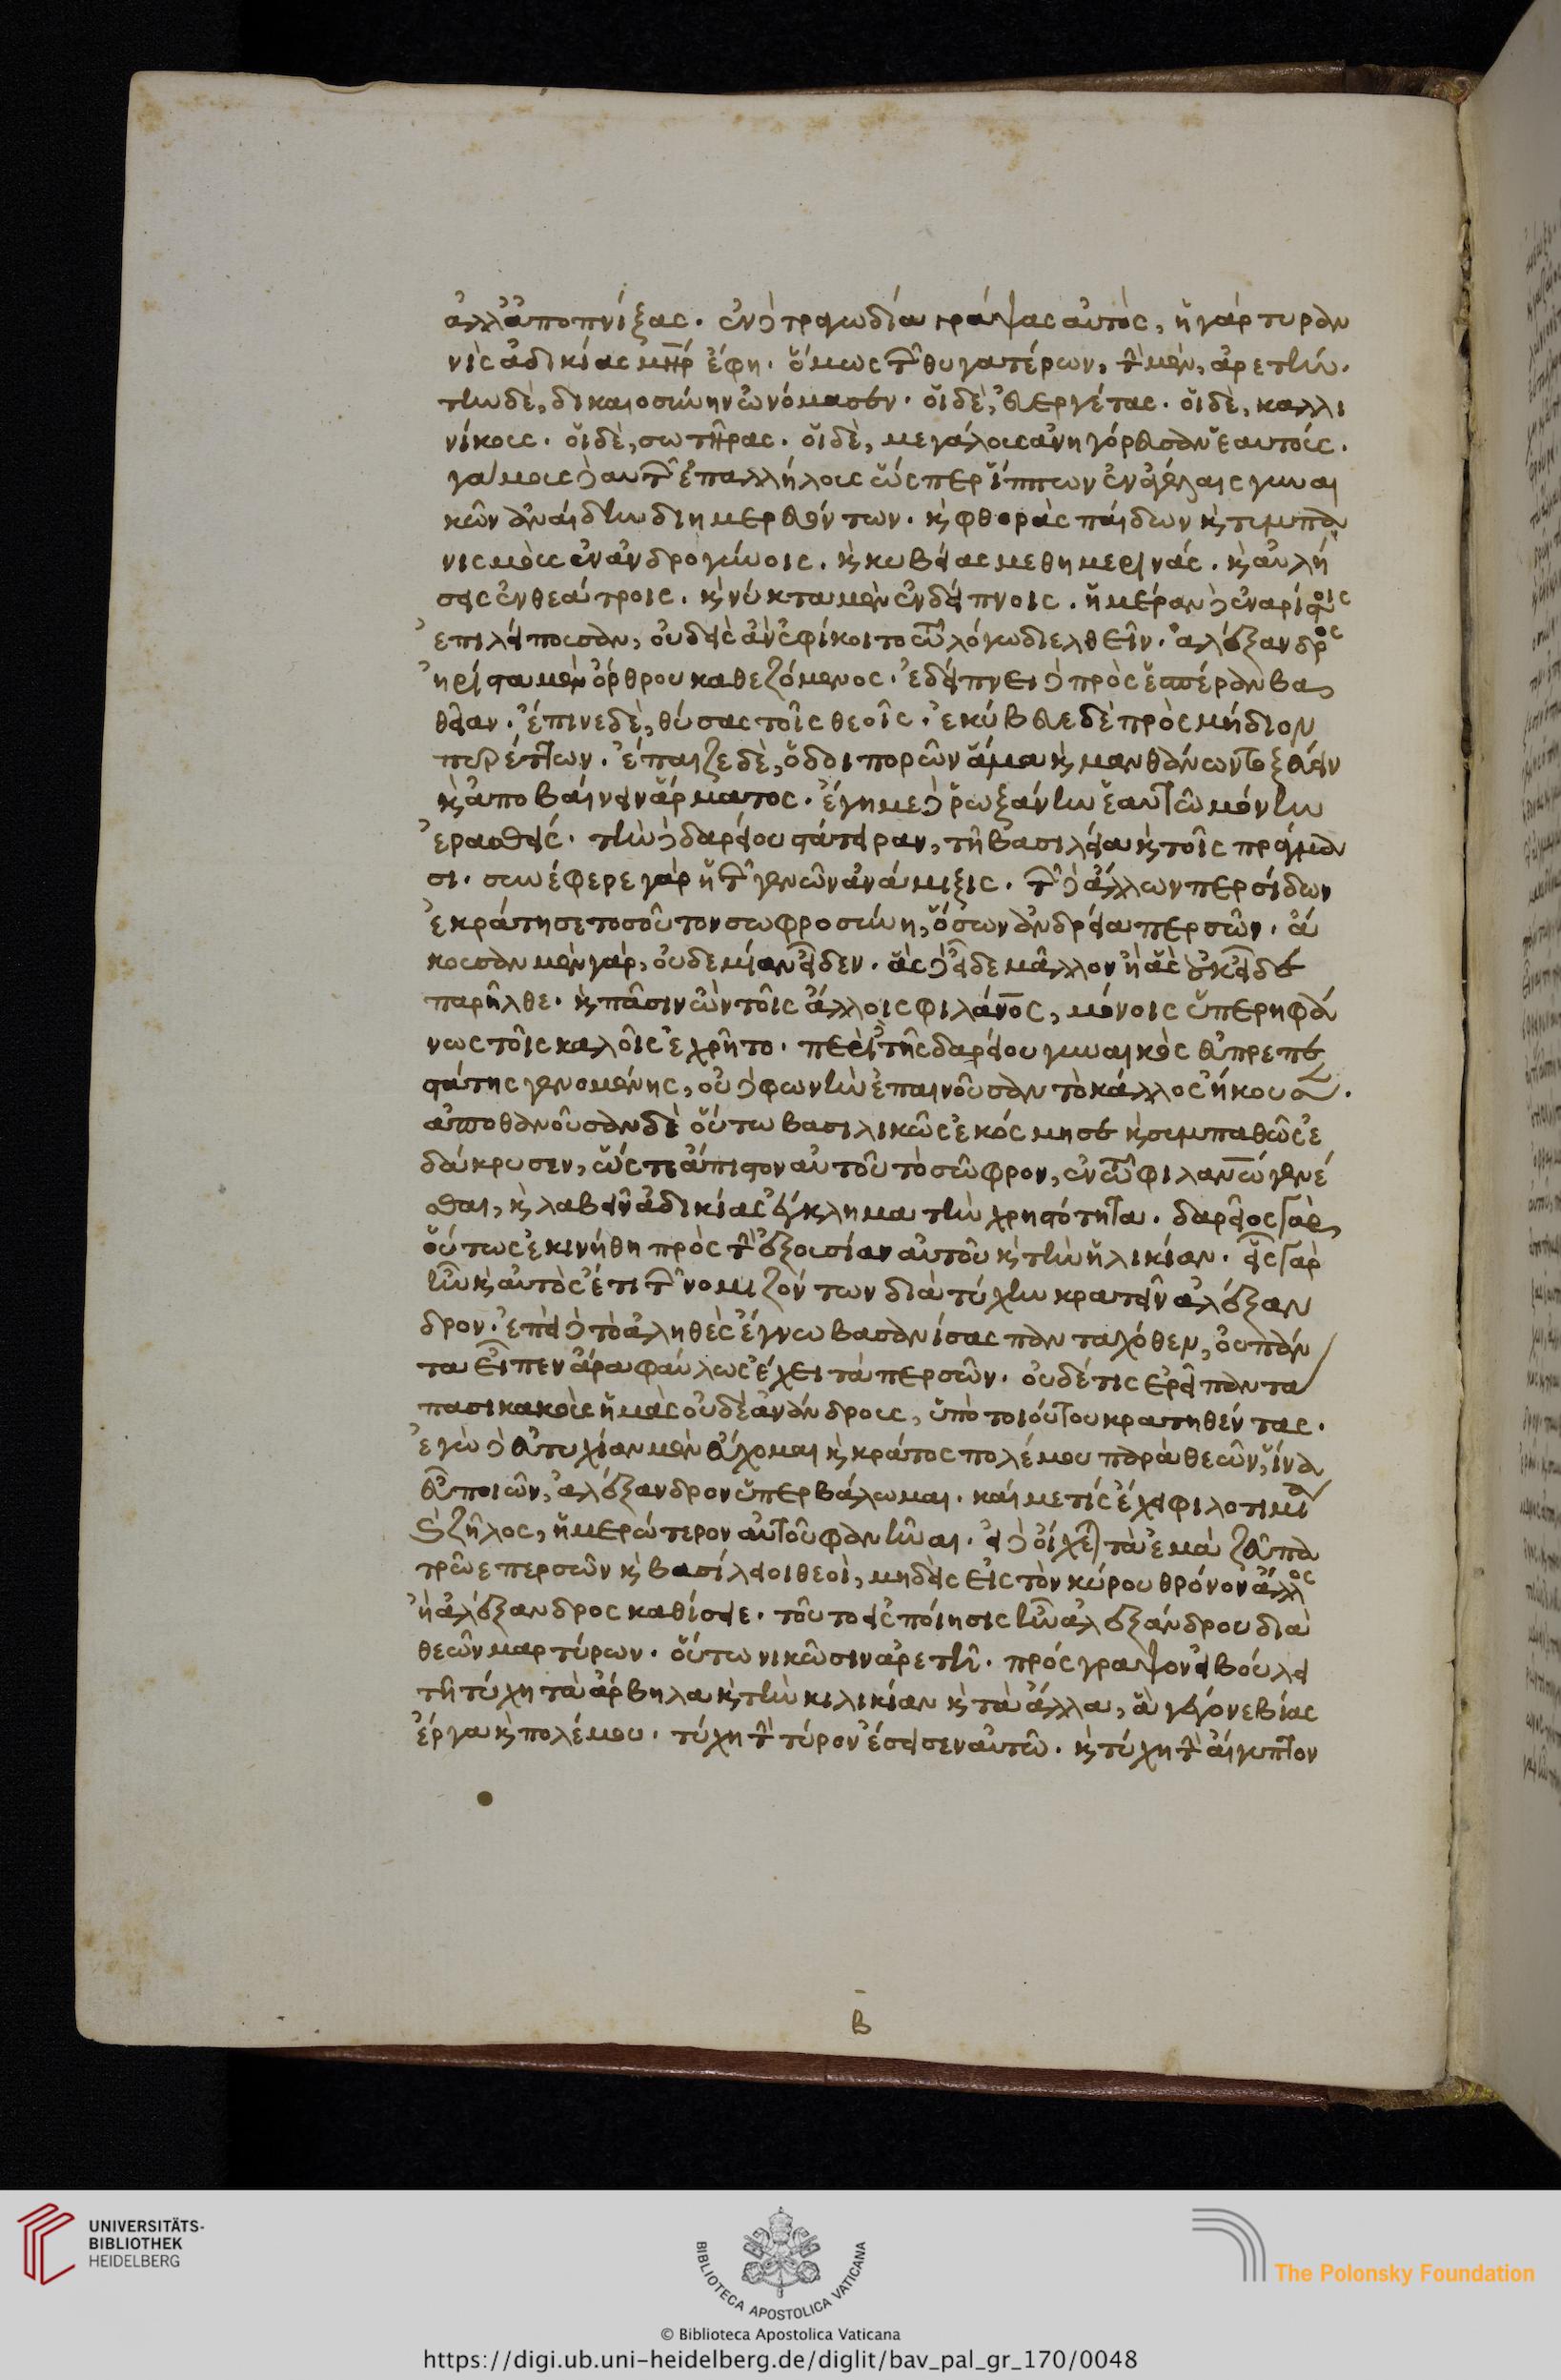 ἀλλ' ἀποπνίξας. ἐν δὲ τραγωδία γράψας αὐτὸς, ἡ γὰρ τυραν
νὶς ἀδικίας μηρ ἔφη. ὅμως τῶν θυγατέρων, τὴν μὲν, ἀρετὴν.
τὴν δὲ, δικαιοσύνην ὠνόμασεν. οἱ δὲ, εὐεργέτας. οἱ δὲ, καλλι
νίκους. οἱ δὲ, σωτῆρας. οἱ δὲ, μεγάλους ἀνηγόρευσαν ἑαυτοὺς.
γάμους δὲ αὐτῶν ἐπαλλήλους ὥσπερ ἵππων ἐν ἀγέλαις γυναι
κῶν ἀναίδην διημερευόντων. κ φθορὰς παίδων κ τυμπα
νισμοὺς ἐν ἀνδρογύνοις. κ κυβείας μεθημερινάς. κ αὐλή
σεις ἐν θεάτροις. κ νύκτα μὲν ἐν δείπνοις. ἡμέραν δὲ ἐν ἀρίστοις
ἐπιλείπουσαν, οὐδεὶς ἂν ἐφίκοιτο τῶ λόγω διελθεῖν. ἀλέξανδρος
ἠρίστα μὲν ὄρθρου καθεζόμενος. ἐδείπνει δὲ πρὸς ἑσπέραν βα
θεῖαν. ἔπινε δὲ, θύσας τοῖς θεοῖς. ἐκύβευε δὲ πρὸς μήδιον
πυρέττων. ἔπαιζε δὲ, ὁδοιπορῶν ἅμα κ μανθάνων τοξεύειν
κ ἀποβαίνειν ἅρματος. ἔγημε δὲ ῥωξάνην ἑαυτῶ μόνην
ἐρασθείς. τὴν δὲ δαρείου στάτειραν, τῆ βασιλεία κ τοῖς πράγμα
σι. συνέφερε γὰρ ἡ τῶν γενῶν ἀνάμιξις. τῶν δὲ ἄλλων περσίδων
ἐκράτησε τοσοῦτον σωφροσύνη, ὅσων ἀνδρεία περσῶν. ἄ
κουσαν μὲν γὰρ, οὐδεμίαν εἶδεν. ἃς δὲ εἶδε μᾶλλον ἢ ἃς οὐκ εἶδε
παρῆλθε. κ πᾶσιν ὢν τοῖς ἄλλοις φιλάνος, μόνοις ὑπερηφά
νως τοῖς καλοῖς ἐχρῆτο. περὶ δὲ τῆς δαρείου γυναικὸς εὐπρεπε
στάτης γενομένης, οὐδὲ φωνὴν ἐπαινοῦσαν τὸ κάλλος ἤκουσ.
ἀποθανοῦσαν δὲ οὕτω βασιλικῶς ἐκόσμησε κ συμπαθῶς ἐ
δάκρυσεν, ὥστε ἄπιστον αὐτοῦ τὸ σῶφρον, ἐν τῶ φιλανω γενέ
σθαι, κ λαβεῖν ἀδικίας ἔγκλημα τὴν χρηστότητα. δαρεῖος γὰρ
οὕτως ἐκινήθη πρὸς τὴν ἐξουσίαν αὐτοῦ κ τὴν ἡλικίαν. εἷς γὰρ
ἦν κ αὐτὸς ἔτι τῶν νομιζόντων διὰ τύχην κρατεῖν ἀλέξαν
δρον. ἐπεὶ δὲ τὸ ἀληθὲς ἔγνω βασανίσας πανταχόθεν, οὐ πάν
τα εἶπεν ἄρα φαύλως ἔχει τὰ περσῶν. οὐδέ τις ἐρεῖ παντα
πασι κακοὺς ἡμᾶς οὐδὲ ἀνάνδρους, ὑπὸ τοιούτου κρατηθέντας.
ἐγὼ δὲ εὐτυχίαν μὲν εὔχομαι κ κράτος πολέμου παρὰ θεῶν, ἵνα
εὖ ποιῶν, ἀλέξανδρον ὑπερβάλωμαι. καί με τίς ἔχει φιλοτιμία
κ ζῆλος, ἡμερώτερον αὐτοῦ φανῆναι. εἰ δὲ οἴχεται τὰ ἐμὰ ζεῦ πα
τρῶε περσῶν κ βασίλειοι θεοὶ, μηδεὶς εἰς τὸν κύρου θρόνον ἄλλος
ἢ ἀλέξανδρος καθίσειε. τοῦτο εἰσποίησις ἦν ἀλεξάνδρου διὰ
θεῶν μαρτύρων. οὕτω νικῶσιν ἀρετῆ. πρόσγραψον εἰ βούλει
τῆ τύχη τὰ ἄρβηλα κ τὴν κιλικίαν κ τὰ ἄλλα, ἃ γέγονε βίας
ἔργα κ πολέμου. τύχη τὴν τύρον ἔσεισεν αὐτῶ. κ τύχη τὴν αἴγυπτον
β
UNIVERSITÄTS-
BIBLIOTHEK
HEIDELBERG
BIBLIOTECA APOSTOLICA VATICANA
The Polonsky Foundation
© Biblioteca Apostolica Vaticana
https://digi.ub.uni-heidelberg.de/diglit/bav_pal_gr_170/0048